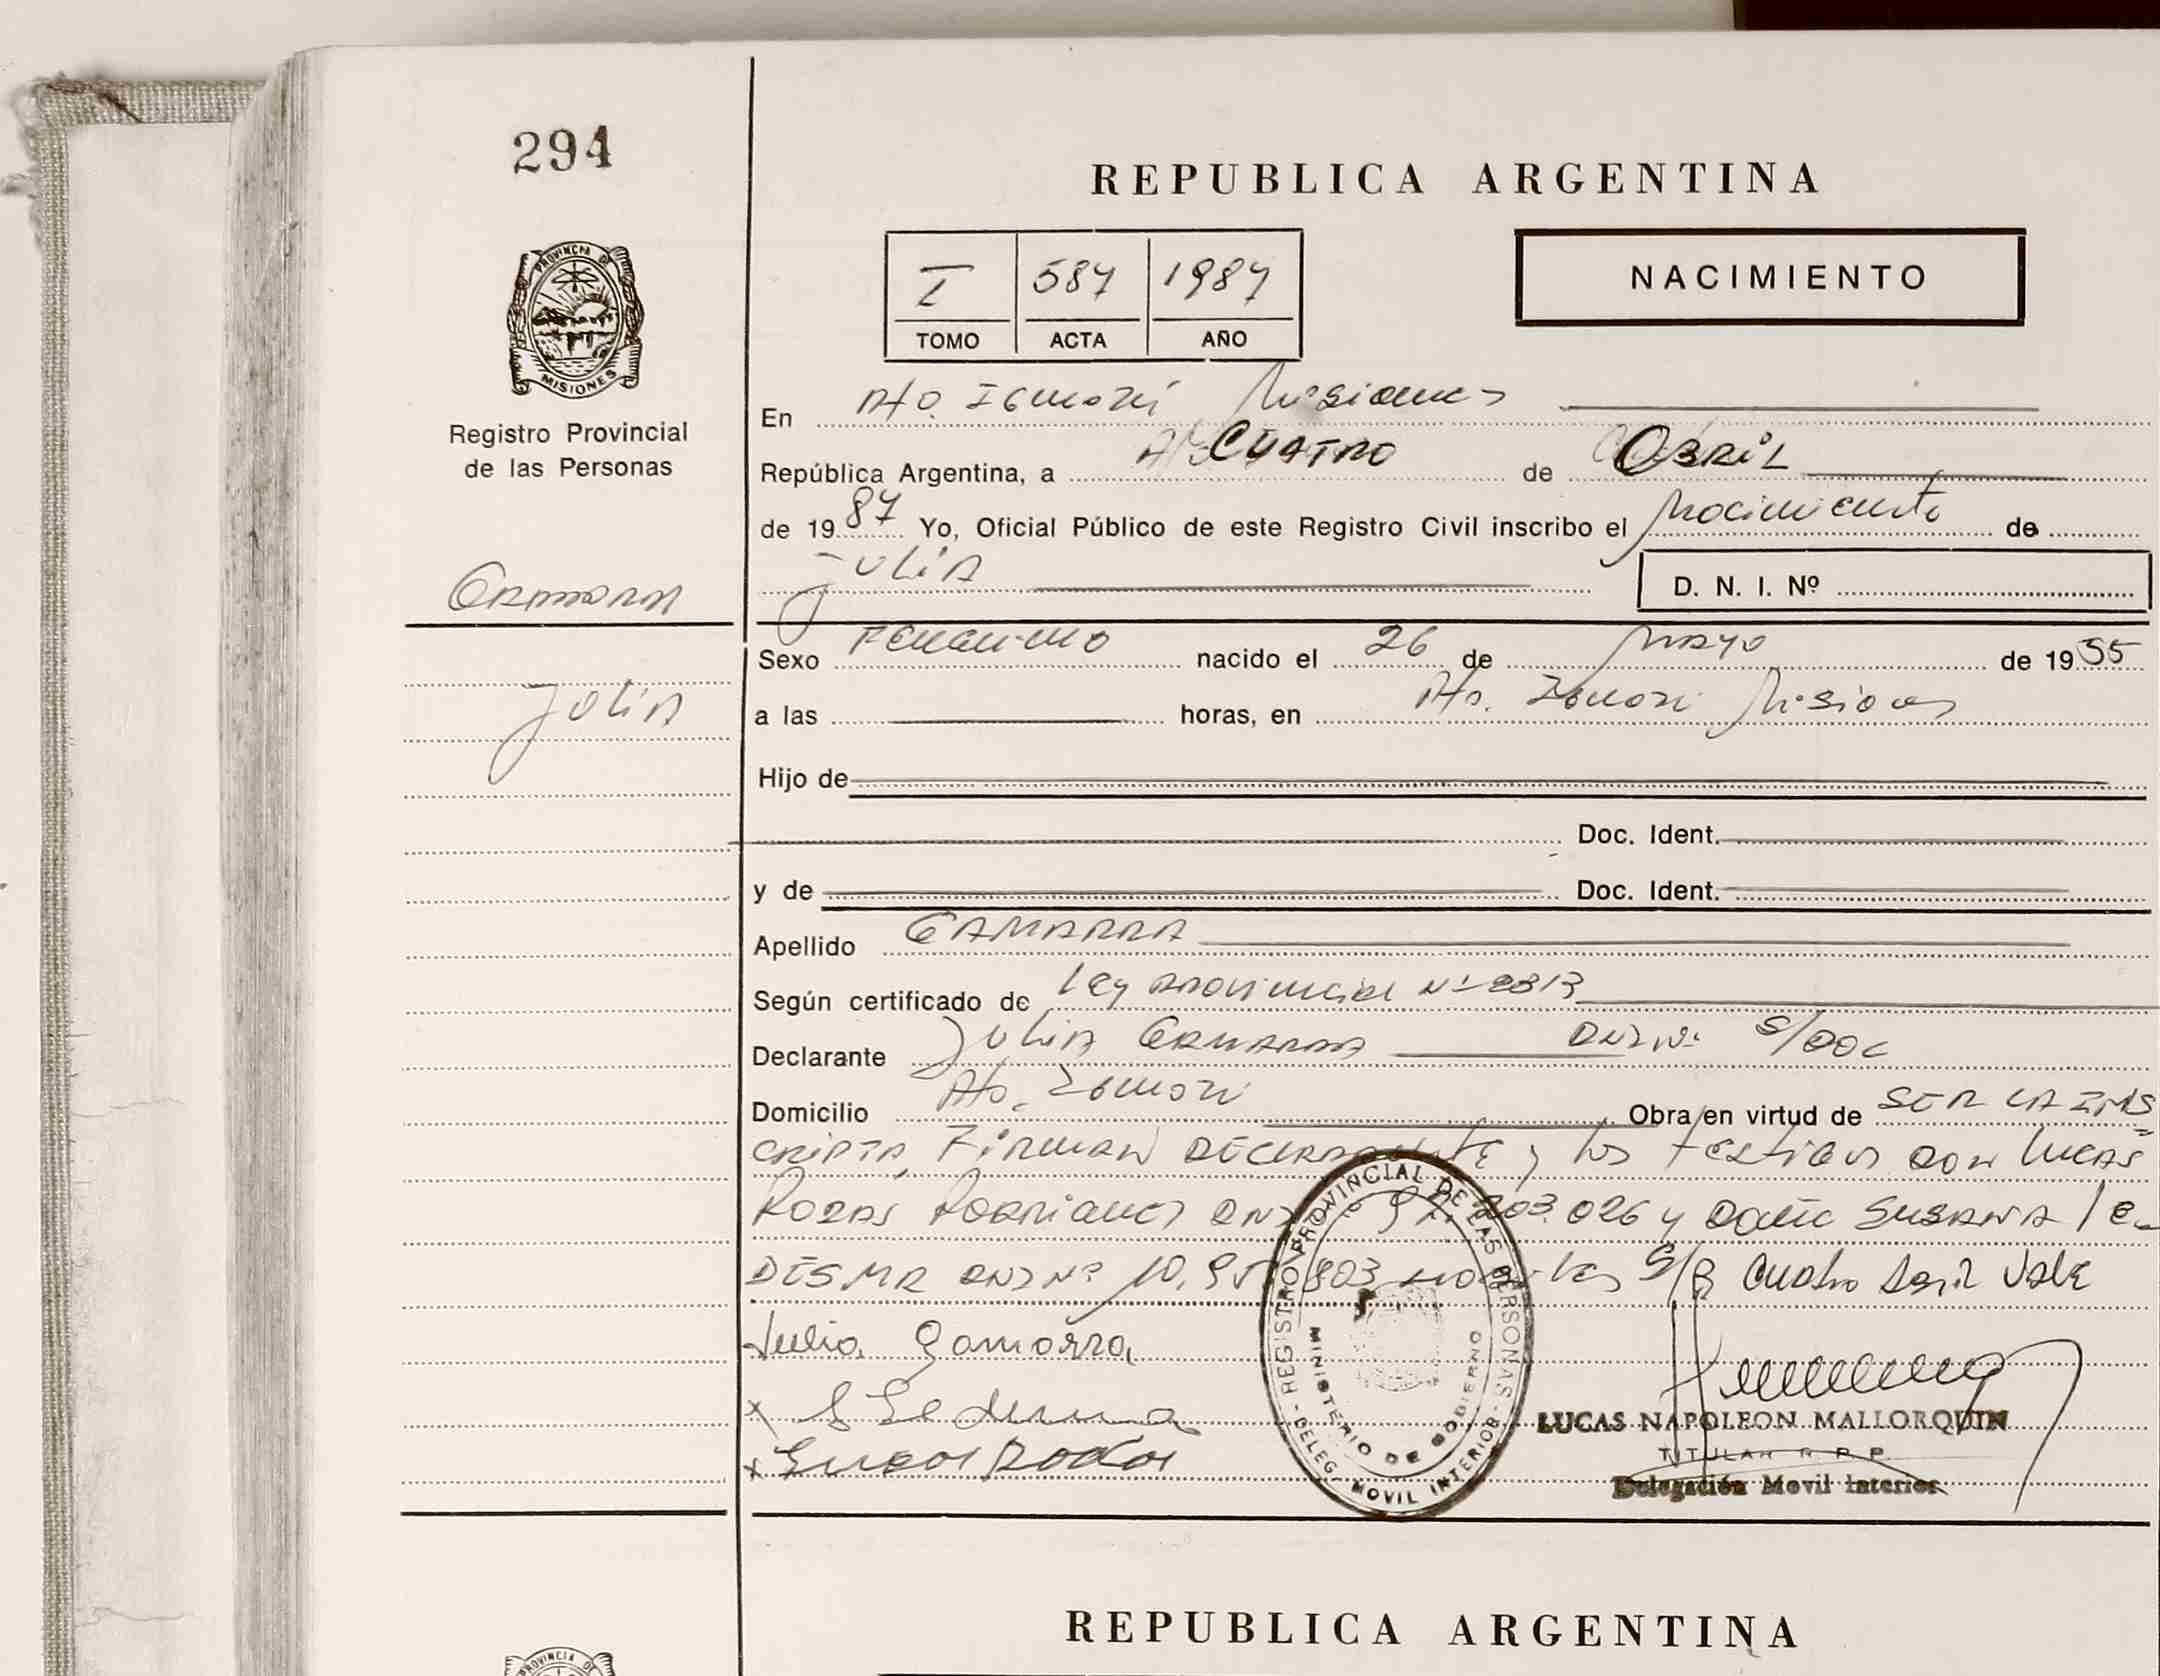 294
REPUBLICA ARGENTINA
PROVINCIA DE
MISIONES
I 587 1987
TOMO ACTA AÑO
NACIMIENTO
Registro Provincial
de las Personas
En Pto. Iguazú Misiones
República Argentina, a CUATRO de ABRIL
de 1987 Yo, Oficial Público de este Registro Civil inscribo el Nacimiento de
JULIA
D. N. I. Nº
GAMARRA
Sexo Femenino nacido el 26 de MAYO de 1955
JULIA
a las horas, en Pto. Iguazú Misiones
Hijo de
Doc. Ident.
y de Doc. Ident.
Apellido GAMARRA
Según certificado de Ley Provincial Nº
Declarante JULIA GAMARRA DNI Nº S/DOC
Domicilio Pto. Iguazú Obra en virtud de SER LA INS
CRIPTA, FIRMAN DECLARANTE y los testigos DON LUCAS
RODAS RODRIGUEZ DNI y doña SUSANA LE
DESMA DNI Nº S/R Cuatro Abril Vale
Julia Gamarra
x S Ledesma
x Lucas Rodas
REGISTRO PROVINCIAL DE LAS PERSONAS
- DELEG. MOVIL INTERIOR -
MINISTERIO DE GOBIERNO
LUCAS NAPOLEON MALLORQUIN
TITULAR R. P. P.
Delegación Movil Interior
REPUBLICA ARGENTINA
PROVINCIA DE